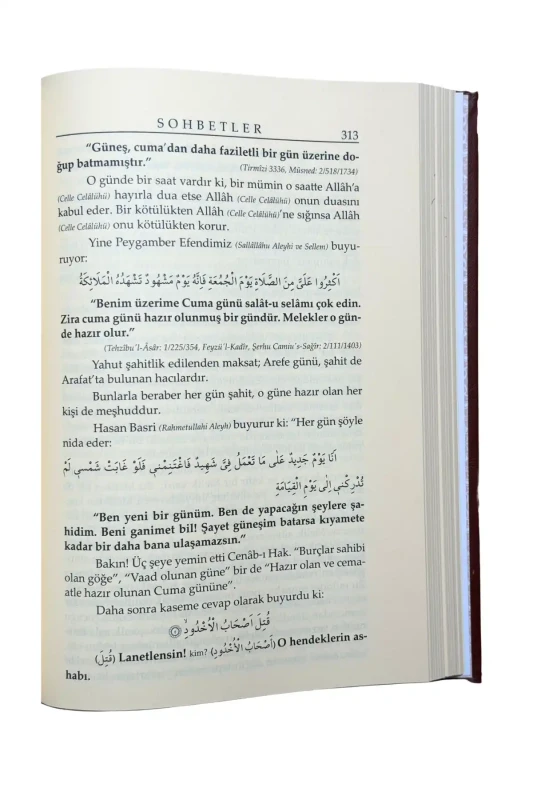 SOHBETLER 313
"Güneş, cuma'dan daha faziletli bir gün üzerine do-
ğup batmamıştır." (Tirmizî 3336, Müsned: 2/518/1734)
O günde bir saat vardır ki, bir mümin o saatte Allâh'a
(Celle Celâlühû) hayırla dua etse Allâh (Celle Celâlühû) onun duasını
kabul eder. Bir kötülükten Allâh (Celle Celâlühû)'ne sığınsa Allâh
(Celle Celâlühû) onu kötülükten korur.
Yine Peygamber Efendimiz (Sallâllâhu Aleyhi ve Sellem) buyu-
ruyor:
اَكْثِرُوا عَلَىَّ مِنَ الصَّلَاةِ يَوْمَ الْجُمُعَةِ فَاِنَّهُ يَوْمٌ مَشْهُودٌ تَشْهَدُهُ الْمَلَائِكَةُ
"Benim üzerime Cuma günü salât-u selâmı çok edin.
Zira cuma günü hazır olunmuş bir gündür. Melekler o gün-
de hazır olur."
(Tehzîbu'l-Âsâr: 1/225/354, Feyzü'l-Kadîr, Şerhu Camiu's-Sağîr: 2/111/1403)
Yahut şahitlik edilenden maksat; Arefe günü, şahit de
Arafat'ta bulunan hacılardır.
Bunlarla beraber her gün şahit, o güne hazır olan her
kişi de meşhuddur.
Hasan Basri (Rahmetullahi Aleyh) buyurur ki: "Her gün şöyle
nida eder:
اَنَا يَوْمٌ جَدِيدٌ عَلٰى مَا تَعْمَلُ فِىَّ شَهِيدٌ فَاغْتَنِمْنِي فَلَوْ غَابَتْ شَمْسِي لَمْ
تُدْرِكْنِي اِلٰى يَوْمِ الْقِيَامَةِ
"Ben yeni bir günüm. Ben de yapacağın şeylere şa-
hidim. Beni ganimet bil! Şayet güneşim batarsa kıyamete
kadar bir daha bana ulaşamazsın."
Bakın! Üç şeye yemin etti Cenâb-ı Hak. "Burçlar sahibi
olan göğe", "Vaad olunan güne" bir de "Hazır olan ve cema-
atle hazır olunan Cuma gününe".
Daha sonra kaseme cevap olarak buyurdu ki:
قُتِلَ اَصْحَابُ الْاُخْدُودِۙ
(قُتِلَ) Lanetlensin! kim? (اَصْحَابُ الْاُخْدُودِ) O hendeklerin as-
habı.